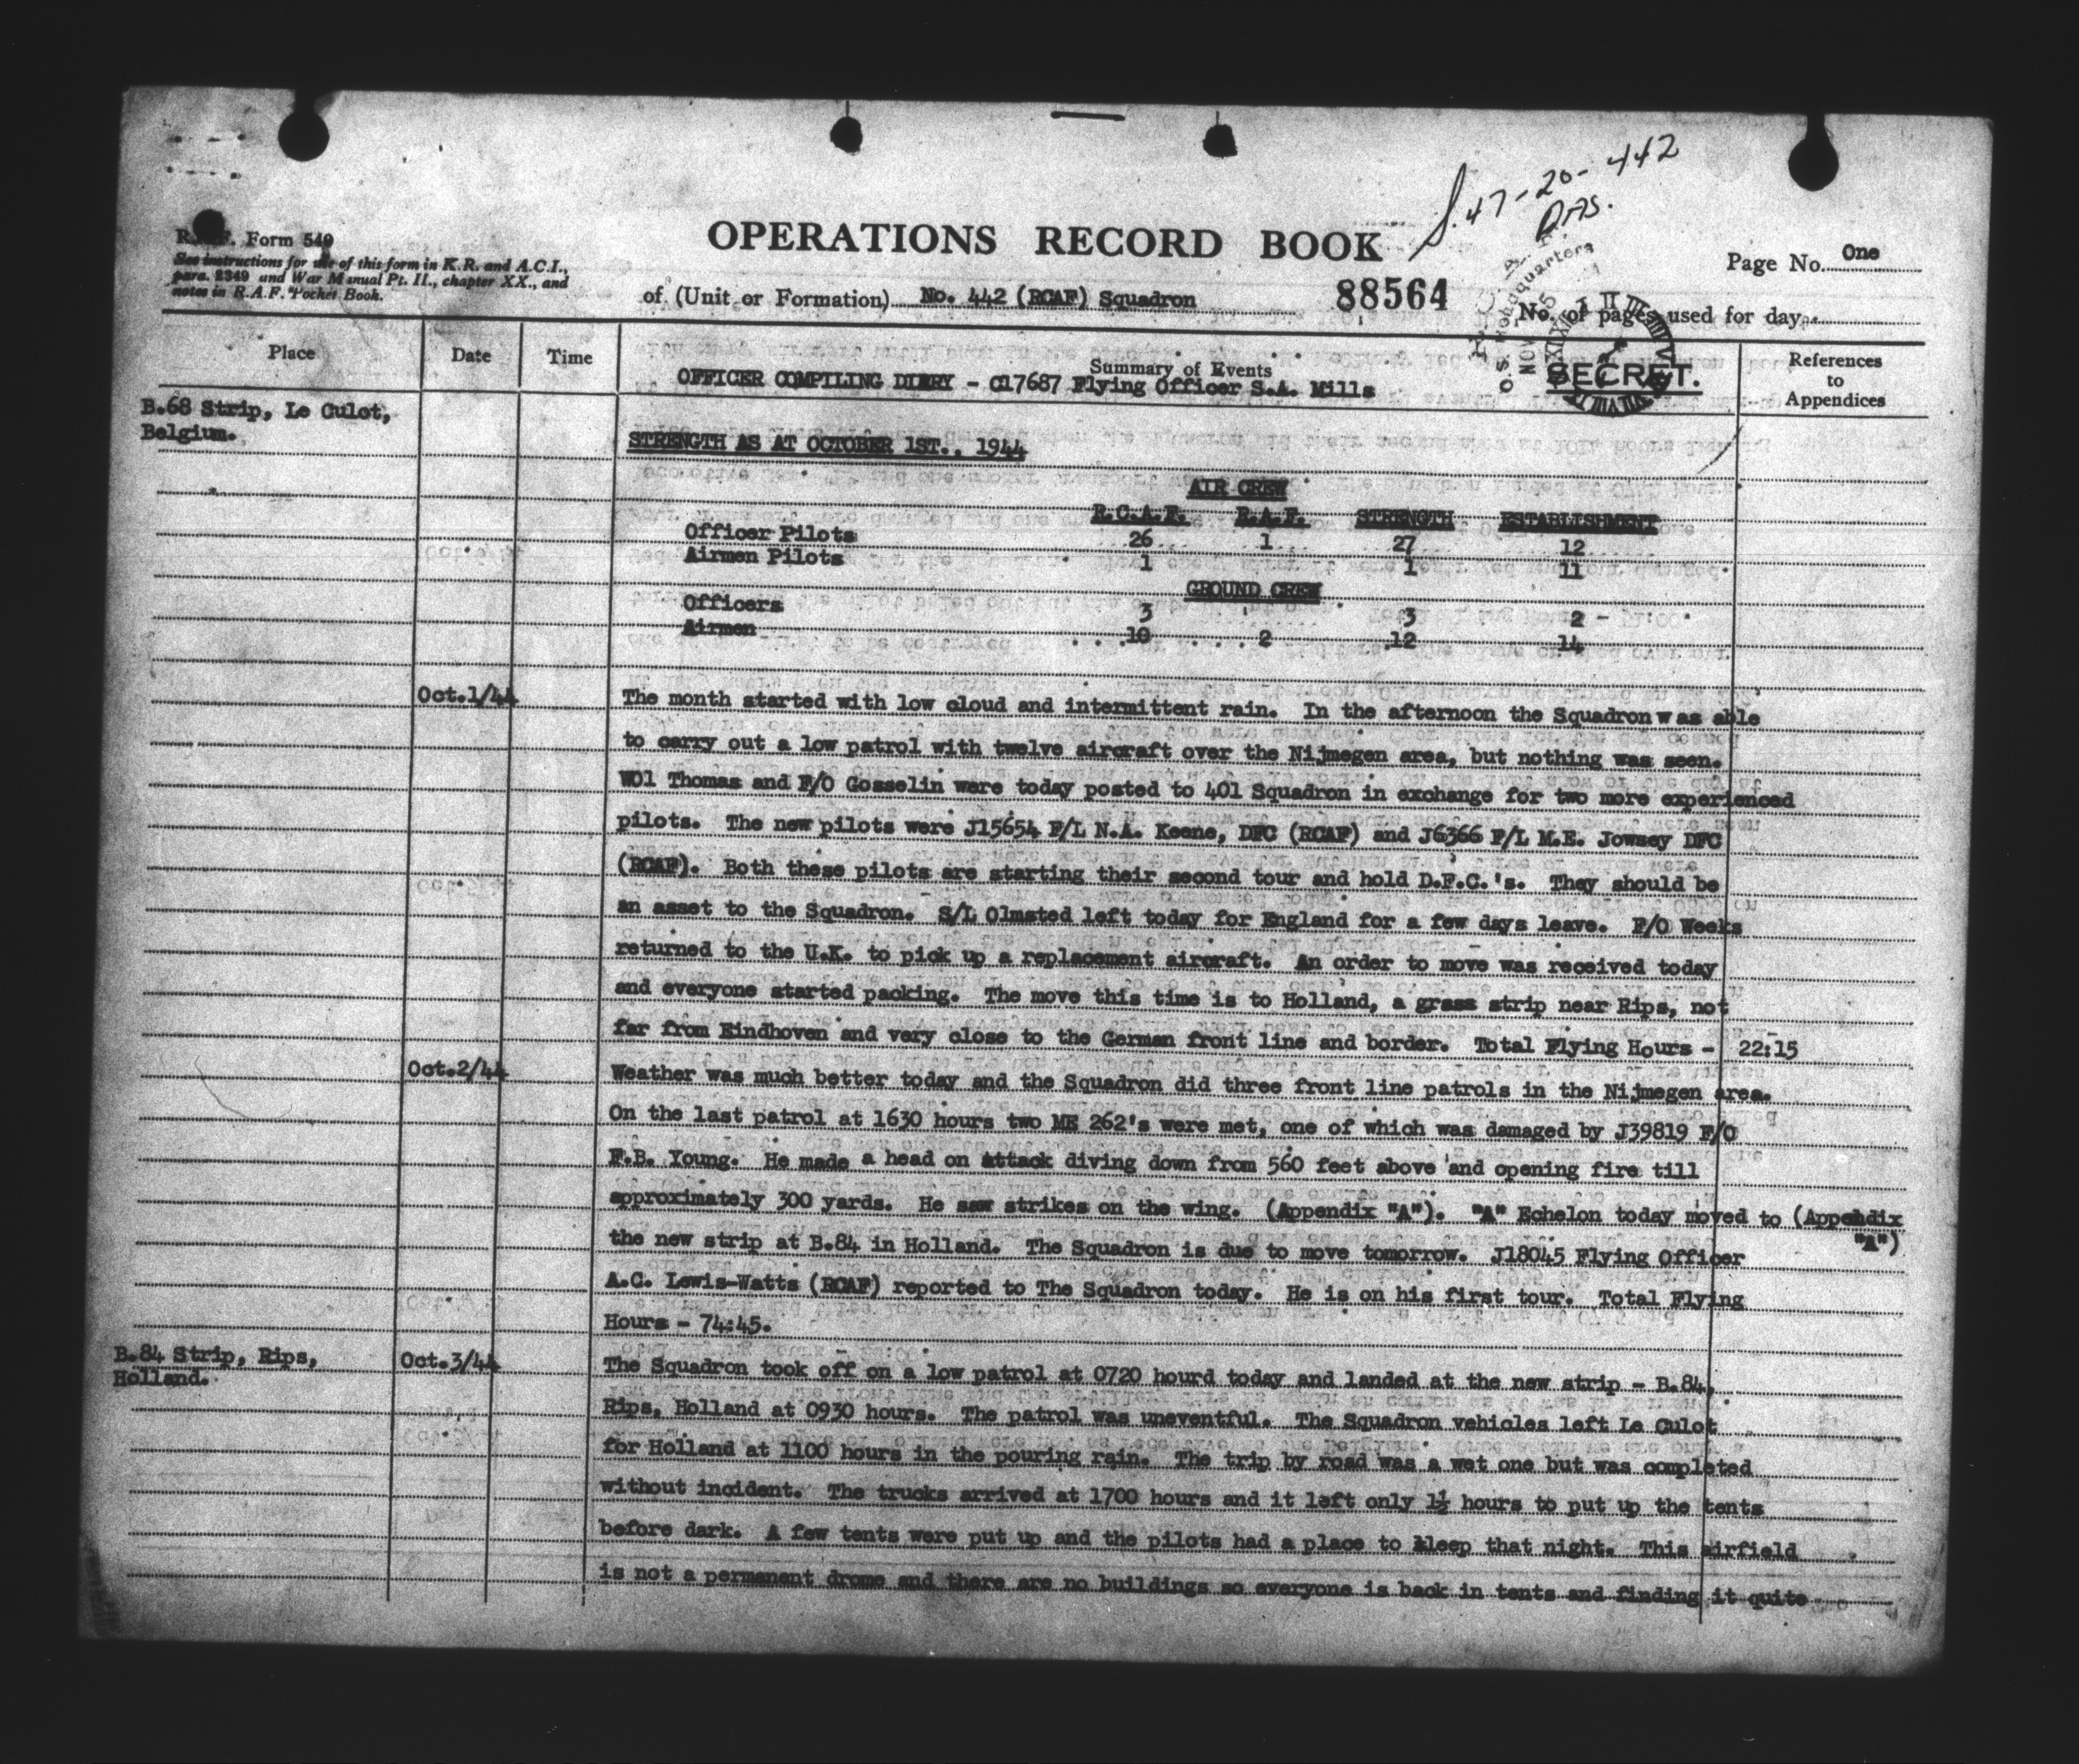 S.47-20-442
DAS.
R.A.F. Form 540
See instructions for use of this form in K.R. and A.C.I.,
para. 2349 and War Manual Pt. II., chapter XX., and
notes in R.A.F. Pocket Book.
OPERATIONS RECORD BOOK
Page No. One
of (Unit or Formation) No. 442 (RCAF) Squadron
88564
No. of pages used for day
SECRET.
Place Date Time Summary of Events References to Appendices
OFFICER COMPILING DIARY - C17687 Flying Officer S.A. Mills
B.68 Strip, Le Culot,
Belgium.
STRENGTH AS AT OCTOBER 1ST., 1944
AIR CREW
R.C.A.F. R.A.F. STRENGTH ESTABLISHMENT
Officer Pilots 26 1 27 12
Airmen Pilots 1 1 11
GROUND CREW
Officers 3 3 2
Airmen 10 2 12 14
Oct.1/44 The month started with low cloud and intermittent rain. In the afternoon the Squadron was able
to carry out a low patrol with twelve aircraft over the Nijmegen area, but nothing was seen.
WO1 Thomas and F/O Gosselin were today posted to 401 Squadron in exchange for two more experienced
pilots. The new pilots were J15654 F/L N.A. Keene, DFC (RCAF) and J6366 F/L M.E. Jowsey DFC
(RCAF). Both these pilots are starting their second tour and hold D.F.C.'s. They should be
an asset to the Squadron. S/L Olmsted left today for England for a few days leave. F/O Weeks
returned to the U.K. to pick up a replacement aircraft. An order to move was received today
and everyone started packing. The move this time is to Holland, a grass strip near Rips, not
far from Eindhoven and very close to the German front line and border. Total Flying Hours - 22:15
Oct.2/44 Weather was much better today and the Squadron did three front line patrols in the Nijmegen area.
On the last patrol at 1630 hours two ME 262's were met, one of which was damaged by J39819 F/O
F.B. Young. He made a head on attack diving down from 560 feet above and opening fire till
approximately 300 yards. He saw strikes on the wing. (Appendix "A"). "A" Echelon today moved to (Appendix
"A")
the new strip at B.84 in Holland. The Squadron is due to move tomorrow. J18045 Flying Officer
A.C. Lewis-Watts (RCAF) reported to The Squadron today. He is on his first tour. Total Flying
Hours - 74:45.
B.84 Strip, Rips,
Holland.
Oct.3/44 The Squadron took off on a low patrol at 0720 hourd today and landed at the new strip - B.84,
Rips, Holland at 0930 hours. The patrol was uneventful. The Squadron vehicles left Le Culot
for Holland at 1100 hours in the pouring rain. The trip by road was a wet one but was completed
without incident. The trucks arrived at 1700 hours and it left only 1½ hours to put up the tents
before dark. A few tents were put up and the pilots had a place to sleep that night. This airfield
is not a permanent drome and there are no buildings so everyone is back in tents and finding it quite